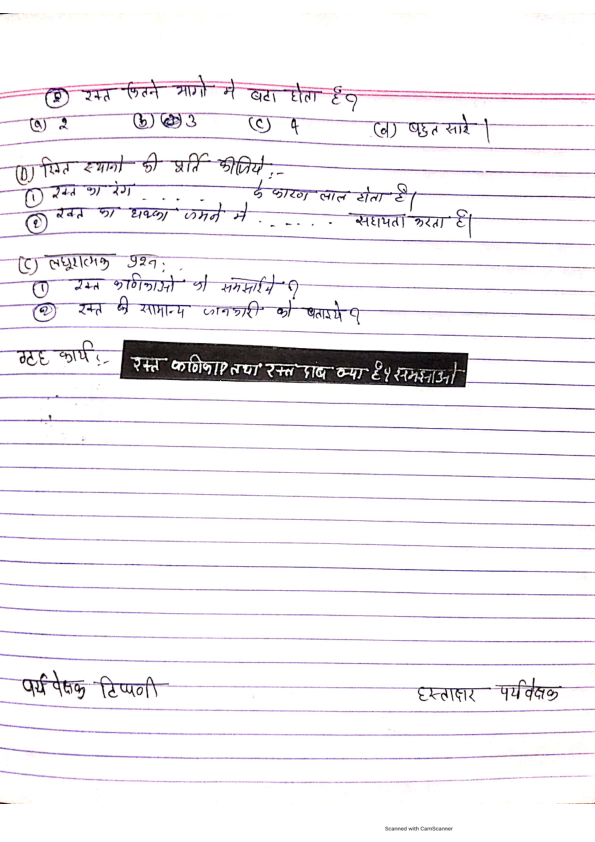 ② रक्त कितने भागों में बटा होता है?
(a) 2 (b) 3 (c) 4 (d) बहुत सारे |
(B) रिक्त स्थानों की पूर्ति कीजिये :-
① रक्त का रंग . . . . . . के कारण लाल होता है |
② रक्त का थक्का जमने में . . . . . . सहायता करता है |
(C) लघुरात्मक प्रश्न :
① रक्त कणिकाओं को समझाईये ?
② रक्त की सामान्य जानकारी को बताइये ?
गृह कार्य :- रक्त कणिकाए तथा रक्त दाब क्या है ? समझाओ
पर्यवेक्षक टिप्पणी हस्ताक्षर पर्यवेक्षक
Scanned with CamScanner